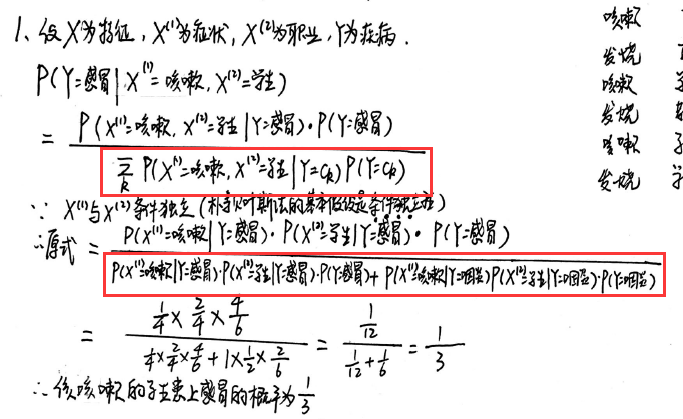 1、设X为特征，X⁽¹⁾为症状，X⁽²⁾为职业，Y为疾病．
P(Y=感冒|X⁽¹⁾=咳嗽, X⁽²⁾=学生)
= P(X⁽¹⁾=咳嗽, X⁽²⁾=学生|Y=感冒)·P(Y=感冒)
Σk P(X⁽¹⁾=咳嗽, X⁽²⁾=学生|Y=Ck)P(Y=Ck)
∵ X⁽¹⁾与X⁽²⁾条件独立(朴素贝叶斯法的基本假设是条件独立性)
∴原式 = P(X⁽¹⁾=咳嗽|Y=感冒)·P(X⁽²⁾=学生|Y=感冒)·P(Y=感冒)
P(X⁽¹⁾=咳嗽|Y=感冒)·P(X⁽²⁾=学生|Y=感冒)·P(Y=感冒)+P(X⁽¹⁾=咳嗽|Y=咽炎)P(X⁽²⁾=学生|Y=咽炎)·P(Y=咽炎)
= (1/4×2/4×4/6)/(1/4×2/4×4/6+1×1/2×2/6) = (1/12)/(1/12+1/6) = 1/3
∴该咳嗽的学生患上感冒的概率为1/3
咳嗽
发烧
咳嗽
发烧
咳嗽
发烧